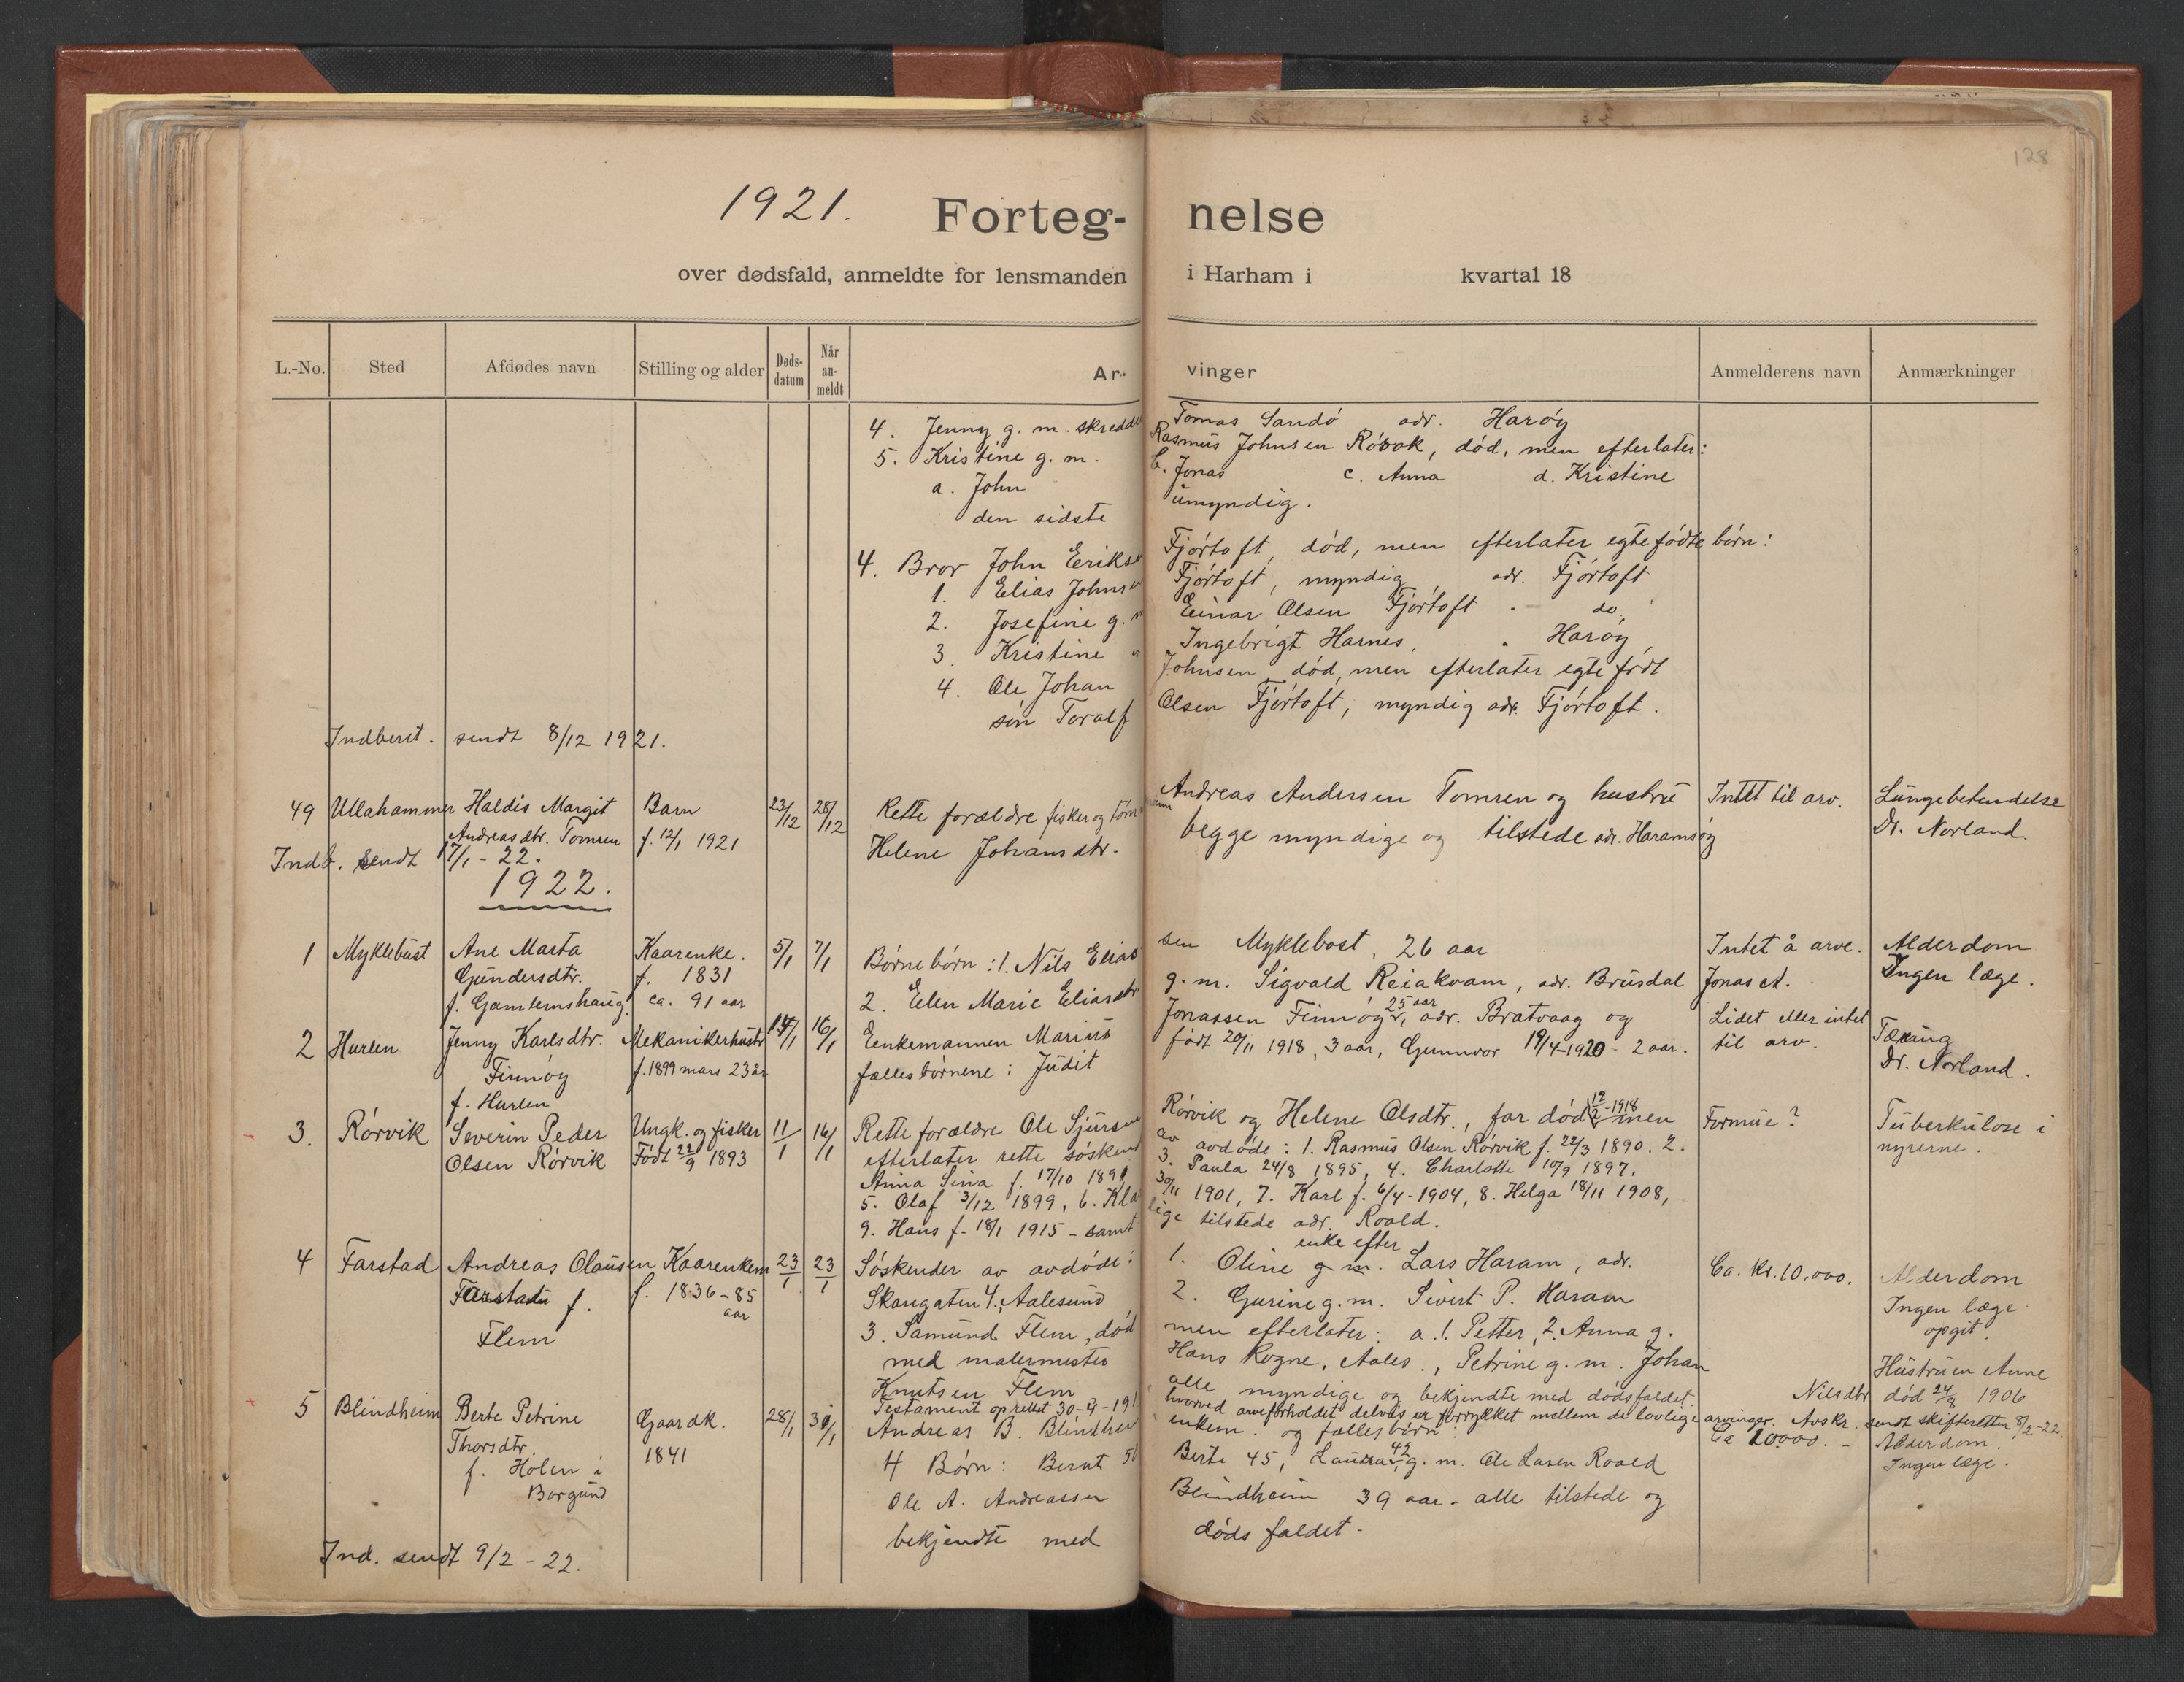 128
1921. Forteg- nelse
over dødsfald, anmeldte for lensmanden i Harham i kvartal 18
L.-No. Sted Afdødes navn Stilling og alder Døds-datum Når an-meldt Ar- vinger Anmelderens navn Anmærkninger
4. Jenny g. m. skredder Tomas Sandö adr. Haröy
5. Kristine g. m. Rasmus Johnsen Rövok, död, men efterlater:
a. John b. Jonas c. Anna d. Kristine
den sidste umyndig.
4. Bror John Eriksen Fjörtoft, död, men efterlater egtefödte börn:
1. Elias Johnsen Fjörtoft, myndig, adr. Fjörtoft
2. Josefine g. m Einar Olsen Fjörtoft " do.
3. Kristine " Ingebrigt Harnes, " Haröy
4. Ole Johan Johnsen död, men efterlater egte födt
sön Toralf Olsen Fjörtoft, myndig adr. Fjörtoft.
Indberet. sendt 8/12 1921.
49 Ullahammer Haldis Margit Barn 23/12 28/12 Rette forældre fisker og tömmerm Andreas Andersen Tomren og hustru Intet til arv. Lungebetendelse
Andreasdtr. Tomren f. 12/1 1921 Helene Johansdtr. begge myndige og tilstede adr. Haramsöy Dr. Norland.
Indb. sendt 17/1 - 22.
1922.
1 Myklebust Ane Marta Kaarenke. 5/1 7/1 Börnebörn: 1. Nils Elias sen Myklebost, 26 aar Intet å arve. Alderdom
Gundersdtr. f. 1831 2. Elen Marie Eliasdtr g. m. Sigvald Reiakvam, adr. Brusdal Jonas A. Ingen læge.
f. Gamlemshaug ca. 91 aar
2 Hurlen Jenny Karlsdtr. Mekanikerhustr 14/1 16/1 Enkemannen Marius Jonassen Finnöy 25 aar, adr. Bratvaag og Lidet eller intet Tæring
Finnöy f. 1899 mars 23 år fællesbörnene: Judit födt 20/11 1918, 3 aar, Gunnvor 19/4-1920 - 2 aar. til arv. Dr. Norland.
f. Hurlen
3. Rörvik Severin Peder Ungk. og fisker 11/1 16/1 Rette forældre Ole Sjursen Rörvik og Helene Olsdtr., far död 12/2-1918 men Formue? Tuberkulose i
Olsen Rörvik Födt 22/9 1893 efterlater rette söskend av avdöde: 1. Rasmus Olsen Rörvik f. 22/3 1890. 2. nyrerne.
Anna Sina f. 17/10 1891 3. Paula 24/8 1895, 4. Charlotte 10/9 1897,
5. Olaf 3/12 1899, 6. Kla 30/11 1901, 7. Karl f. 6/4-1904, 8. Helga 18/11 1908,
9. Hans f. 18/1 1915 - samt lige tilstede adr. Roald.
enke efter
4 Farstad Andreas Olausen Kaarenkem 23/1 23/1 Söskender av avdöde: 1. Oline g m. Lars Haram, adr. Ca. kr. 10.000. Alderdom
Farstad f. f. 1836 - 85 aar Skaregaten 4, Aalesund, 2. Gurine g. m. Sivert P. Haram Ingen læge
Flem 3. Samund Flem, död men efterlater: a. 1. Petter, 2. Anna g. opgit.
med malermester Hans Rogne, Aales., Petrine g. m. Johan Hustruen Anne
Knutsen Flem alle myndige og bekjendte med dödsfaldet. Nilsdtr död 24/8 1906
Testament oprettet 30-4-191 hvorved arveforholdet delvis er forrykket mellem de lovlige arvinger. Avskr. sendt skifteretten 8/2-22.
5 Blindheim Berte Petrine Gaardk. 28/1 30/1 Andreas B. Blindheim enkem. og fællesbörn: Ca 20000. - Alderdom.
Thorsdtr. 1841 4 Börn: Bernt 50 Berte 45, Laura 42, g. m. Ole Larsen Roald Ingen læge.
f. Holen i Ole A. Andreassen Blindheim 39 aar - alle tilstede og
Borgund bekjendte med dödsfaldet -
Ind. sendt 9/2 - 22.